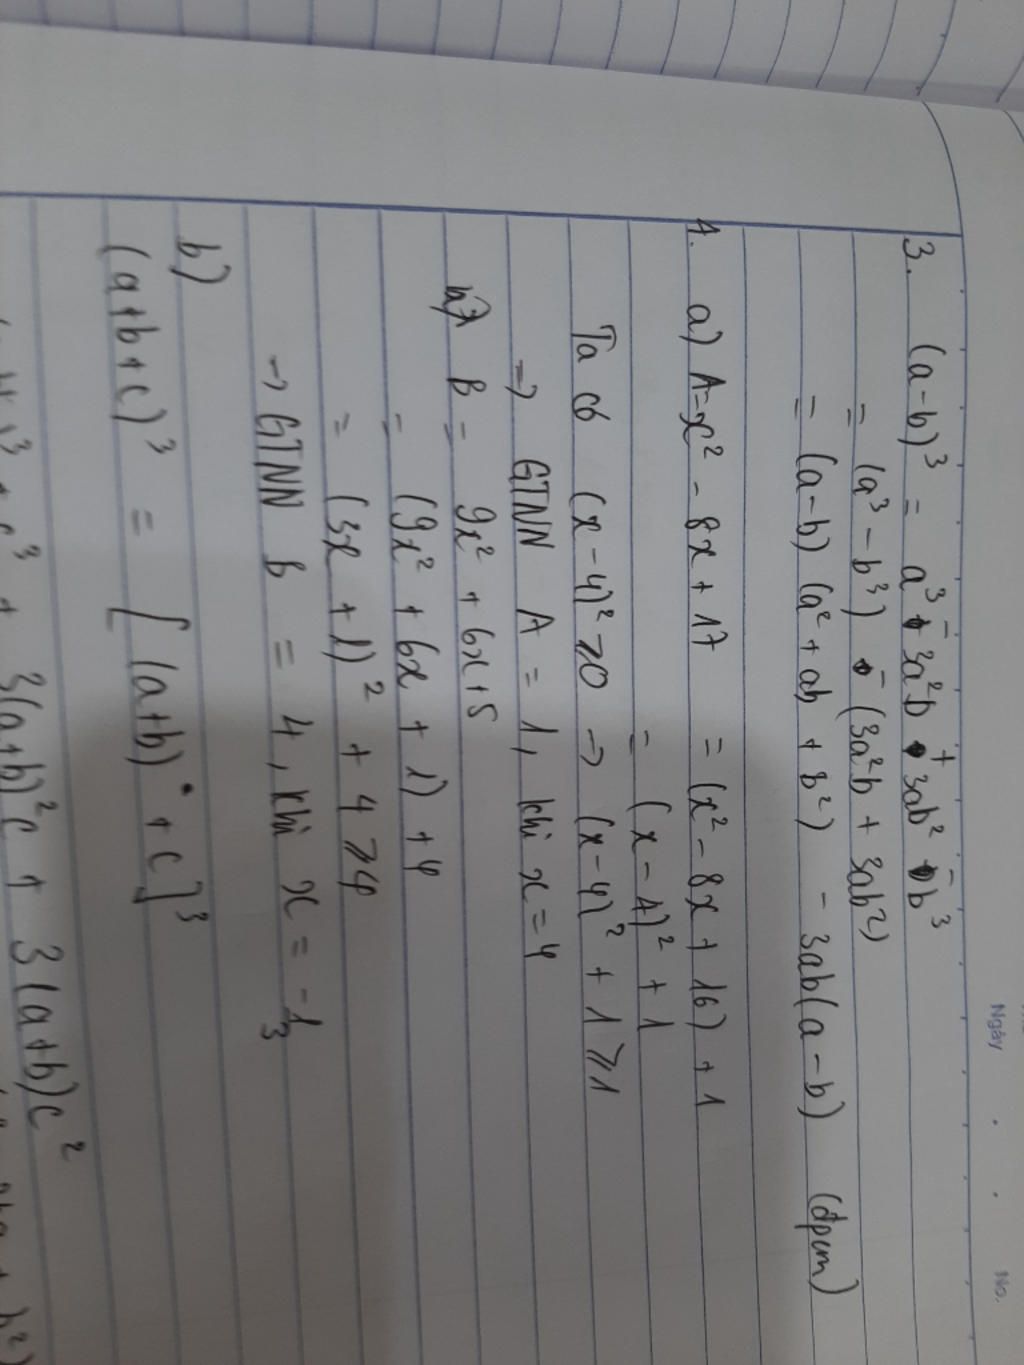 Ngày . . No.
3. (a-b)³ = a³ - 3a²b + 3ab² - b³
= (a³ - b³) - (3a²b + 3ab²)
= (a-b) (a² + ab + b²) - 3ab(a - b) (đpcm)
4. a) A = x² - 8x + 17 = (x² - 8x + 16) + 1
= (x - 4)² + 1
Ta có (x - 4)² ≥ 0 → (x - 4)² + 1 ≥ 1
⇒ GTNN A = 1, khi x = 4
B = 9x² + 6x + 5
= (9x² + 6x + 1) + 4
= (3x + 1)² + 4 ≥ 4
→ GTNN B = 4, khi x = -1/3
b)
(a+b+c)³ = [(a+b) + c]³
³ + c³ + 3(a+b)²c + 3(a+b)c²